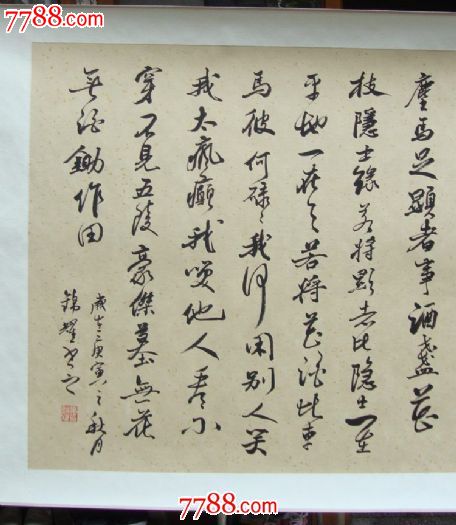 7788.com
7788.com
塵馬足顯者事酒盞花
枝隱士緣若將顯者比隱士一在
平地一在天若將花酒比車
馬彼何碌〻我何閑別人笑
我太瘋癲我笑他人看不
穿不見五陵豪傑墓無花
無酒鋤作田
歲在庚寅之秋月
錦耀書之
7788.com
7788.com